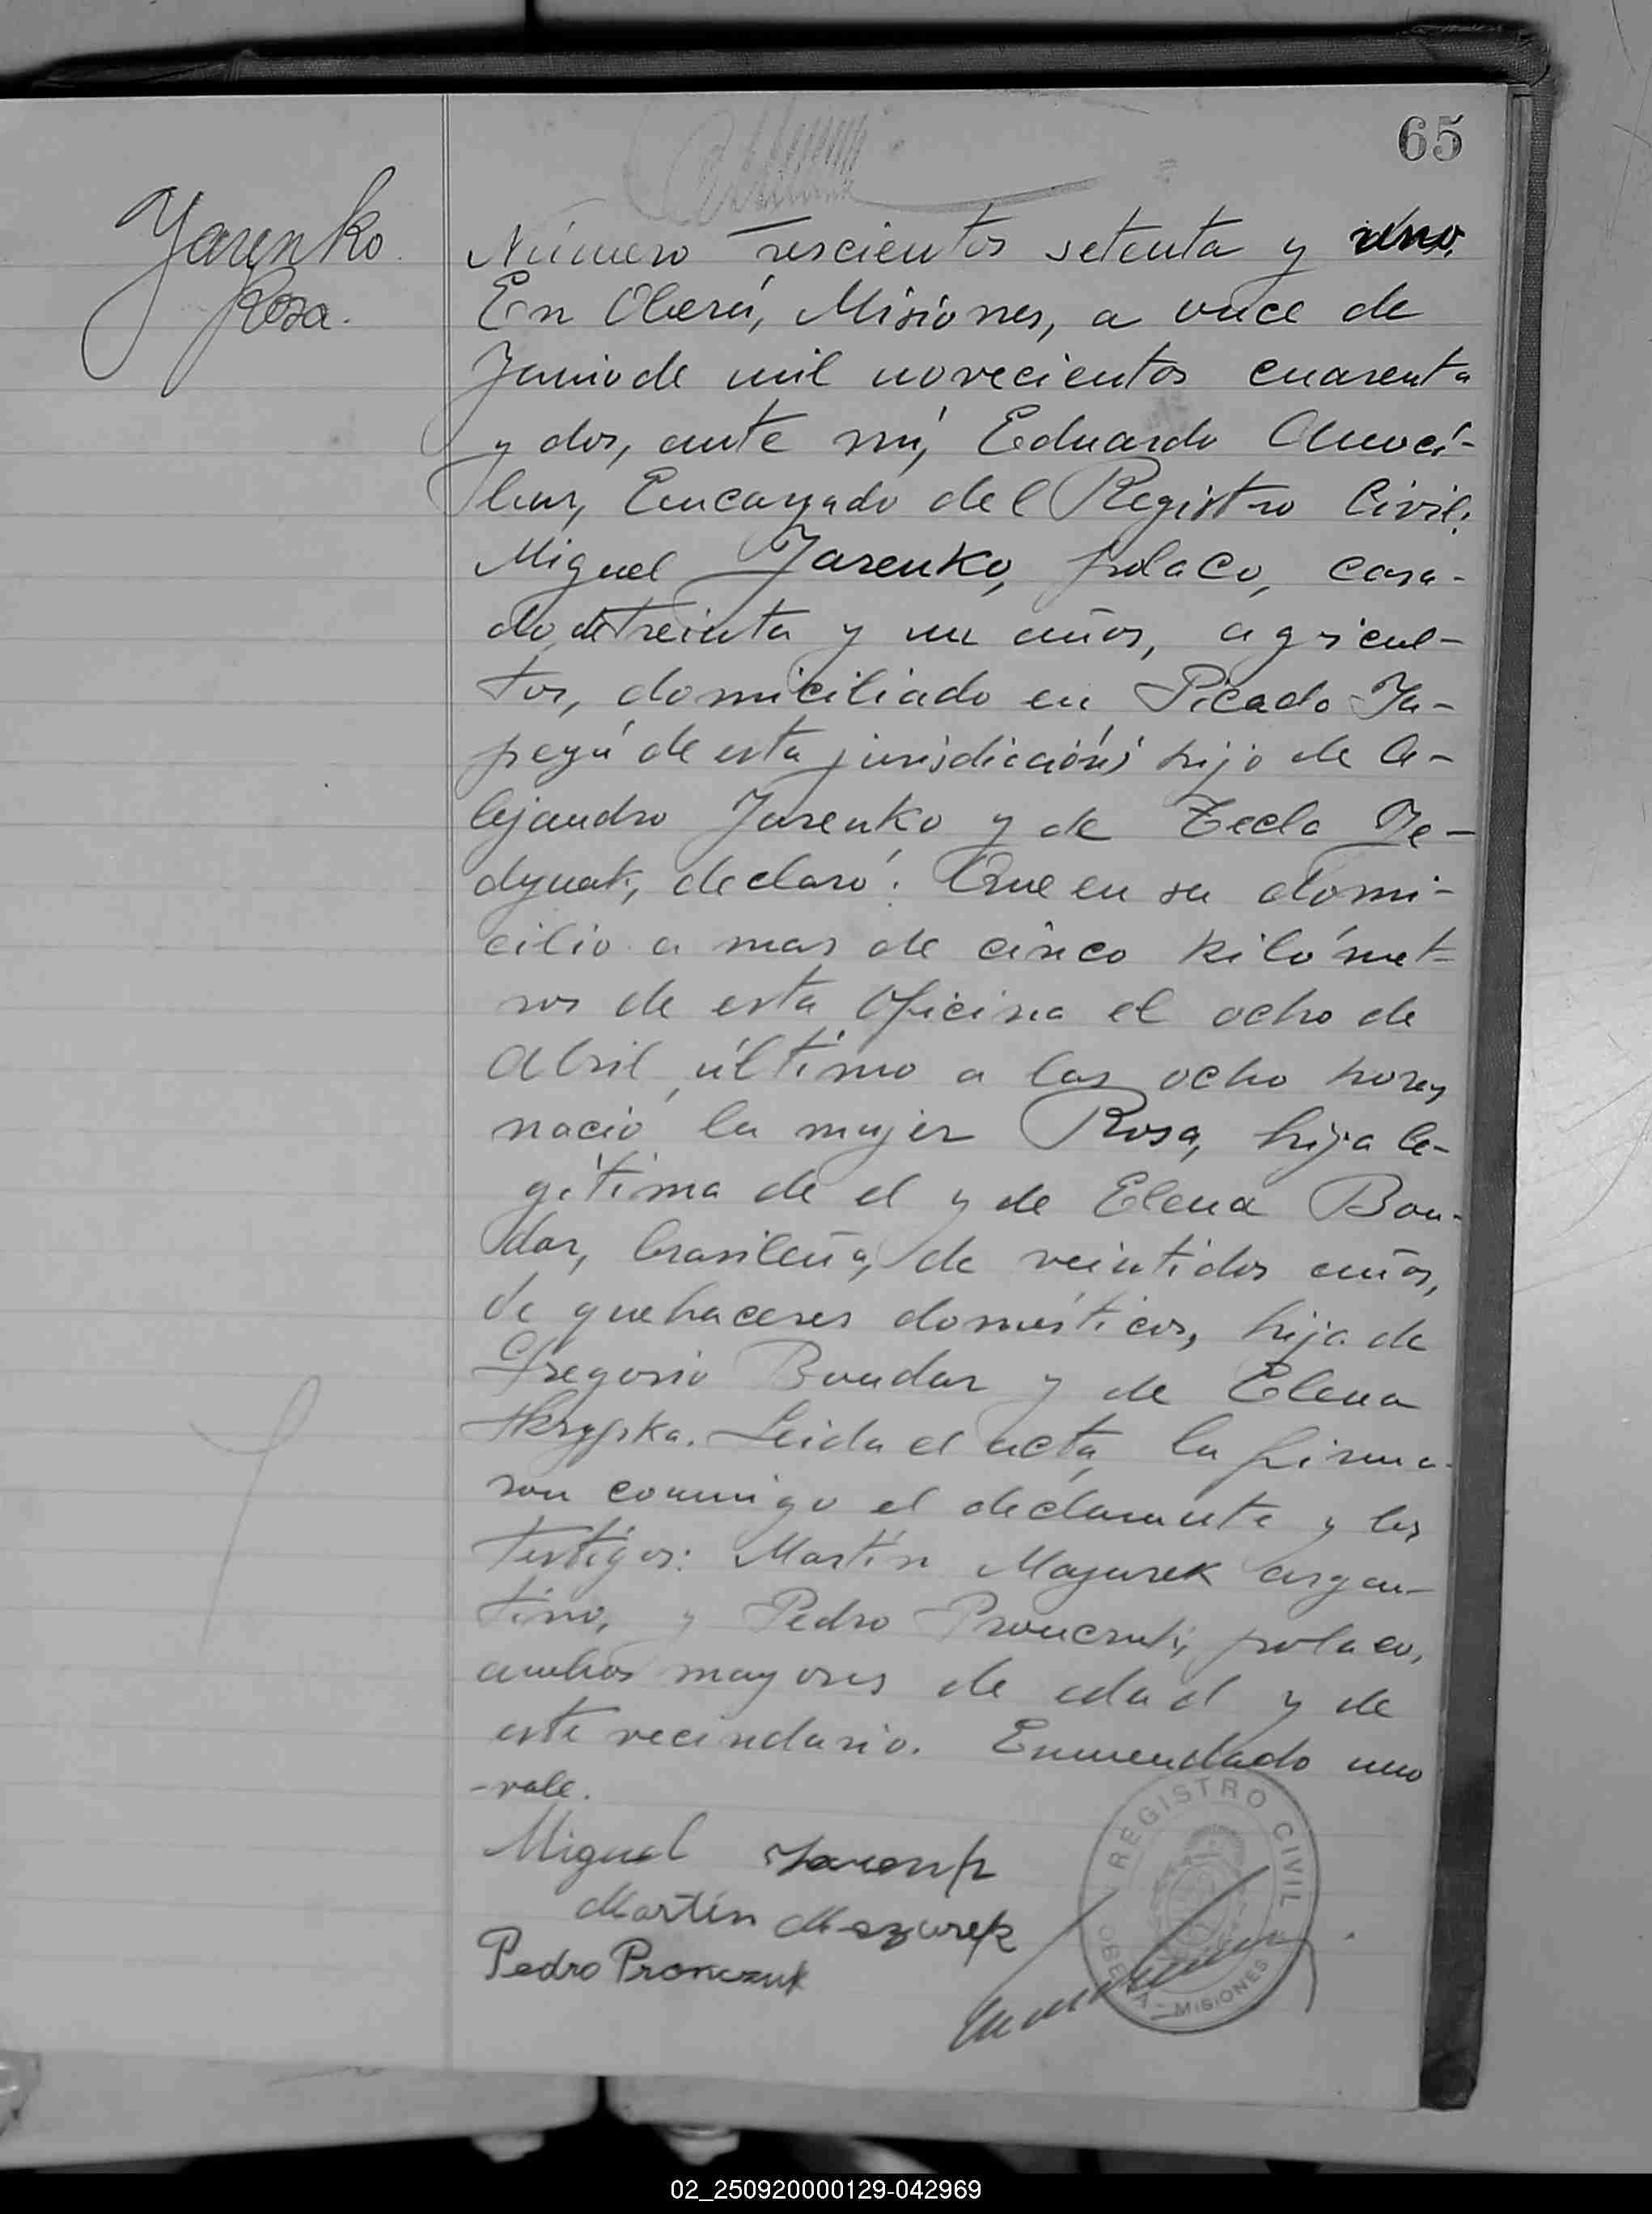 65
Yarenko
Rosa.
Número Trescientos setenta y uno.
En Oberá, Misiones, a once de
Junio de mil novecientos cuarenta
y dos, ante mí, Eduardo
Encargado del Registro Civil;
Miguel Jarenko, polaco, casa-
do, de treinta y un años, agricul-
tor, domiciliado en Picada Ya-
peyú de esta jurisdicción; hijo de A-
lejandro Jarenko y de Tecla Fe-
dynak, declaró: Que en su domi-
cilio a mas de cinco kilómet-
ros de esta Oficina el ocho de
Abril último a las ocho horas
nació la mujer Rosa, hija le-
gítima de el y de Elena Bon-
dar, brasileña, de veintidos años,
de quehaceres domésticos, hija de
Gregorio Bondar y de Elena
Skrypka. Leida el acta, la firma-
ron conmigo el declarante y los
testigos: Martín Mazurek argen-
tino, y Pedro Pronczuk, polaco,
ambos mayores de edad y de
este vecindario. Enmendado uno
-vale.
Miguel
Martín Mazurek
Pedro Pronczuk
REGISTRO CIVIL
OBERÁ - MISIONES
02_250920000129-042969